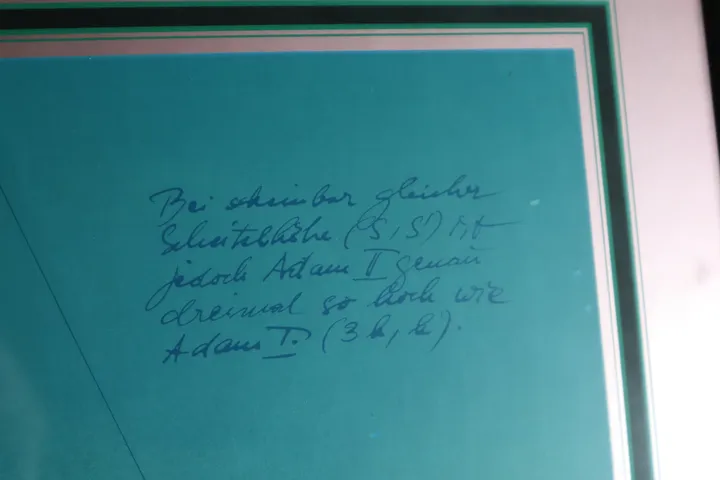 Bei scheinbar gleicher
Scheitelhöhe (S, S') ist
jedoch Adam II genau
dreimal so hoch wie
Adam I. (3h, h).